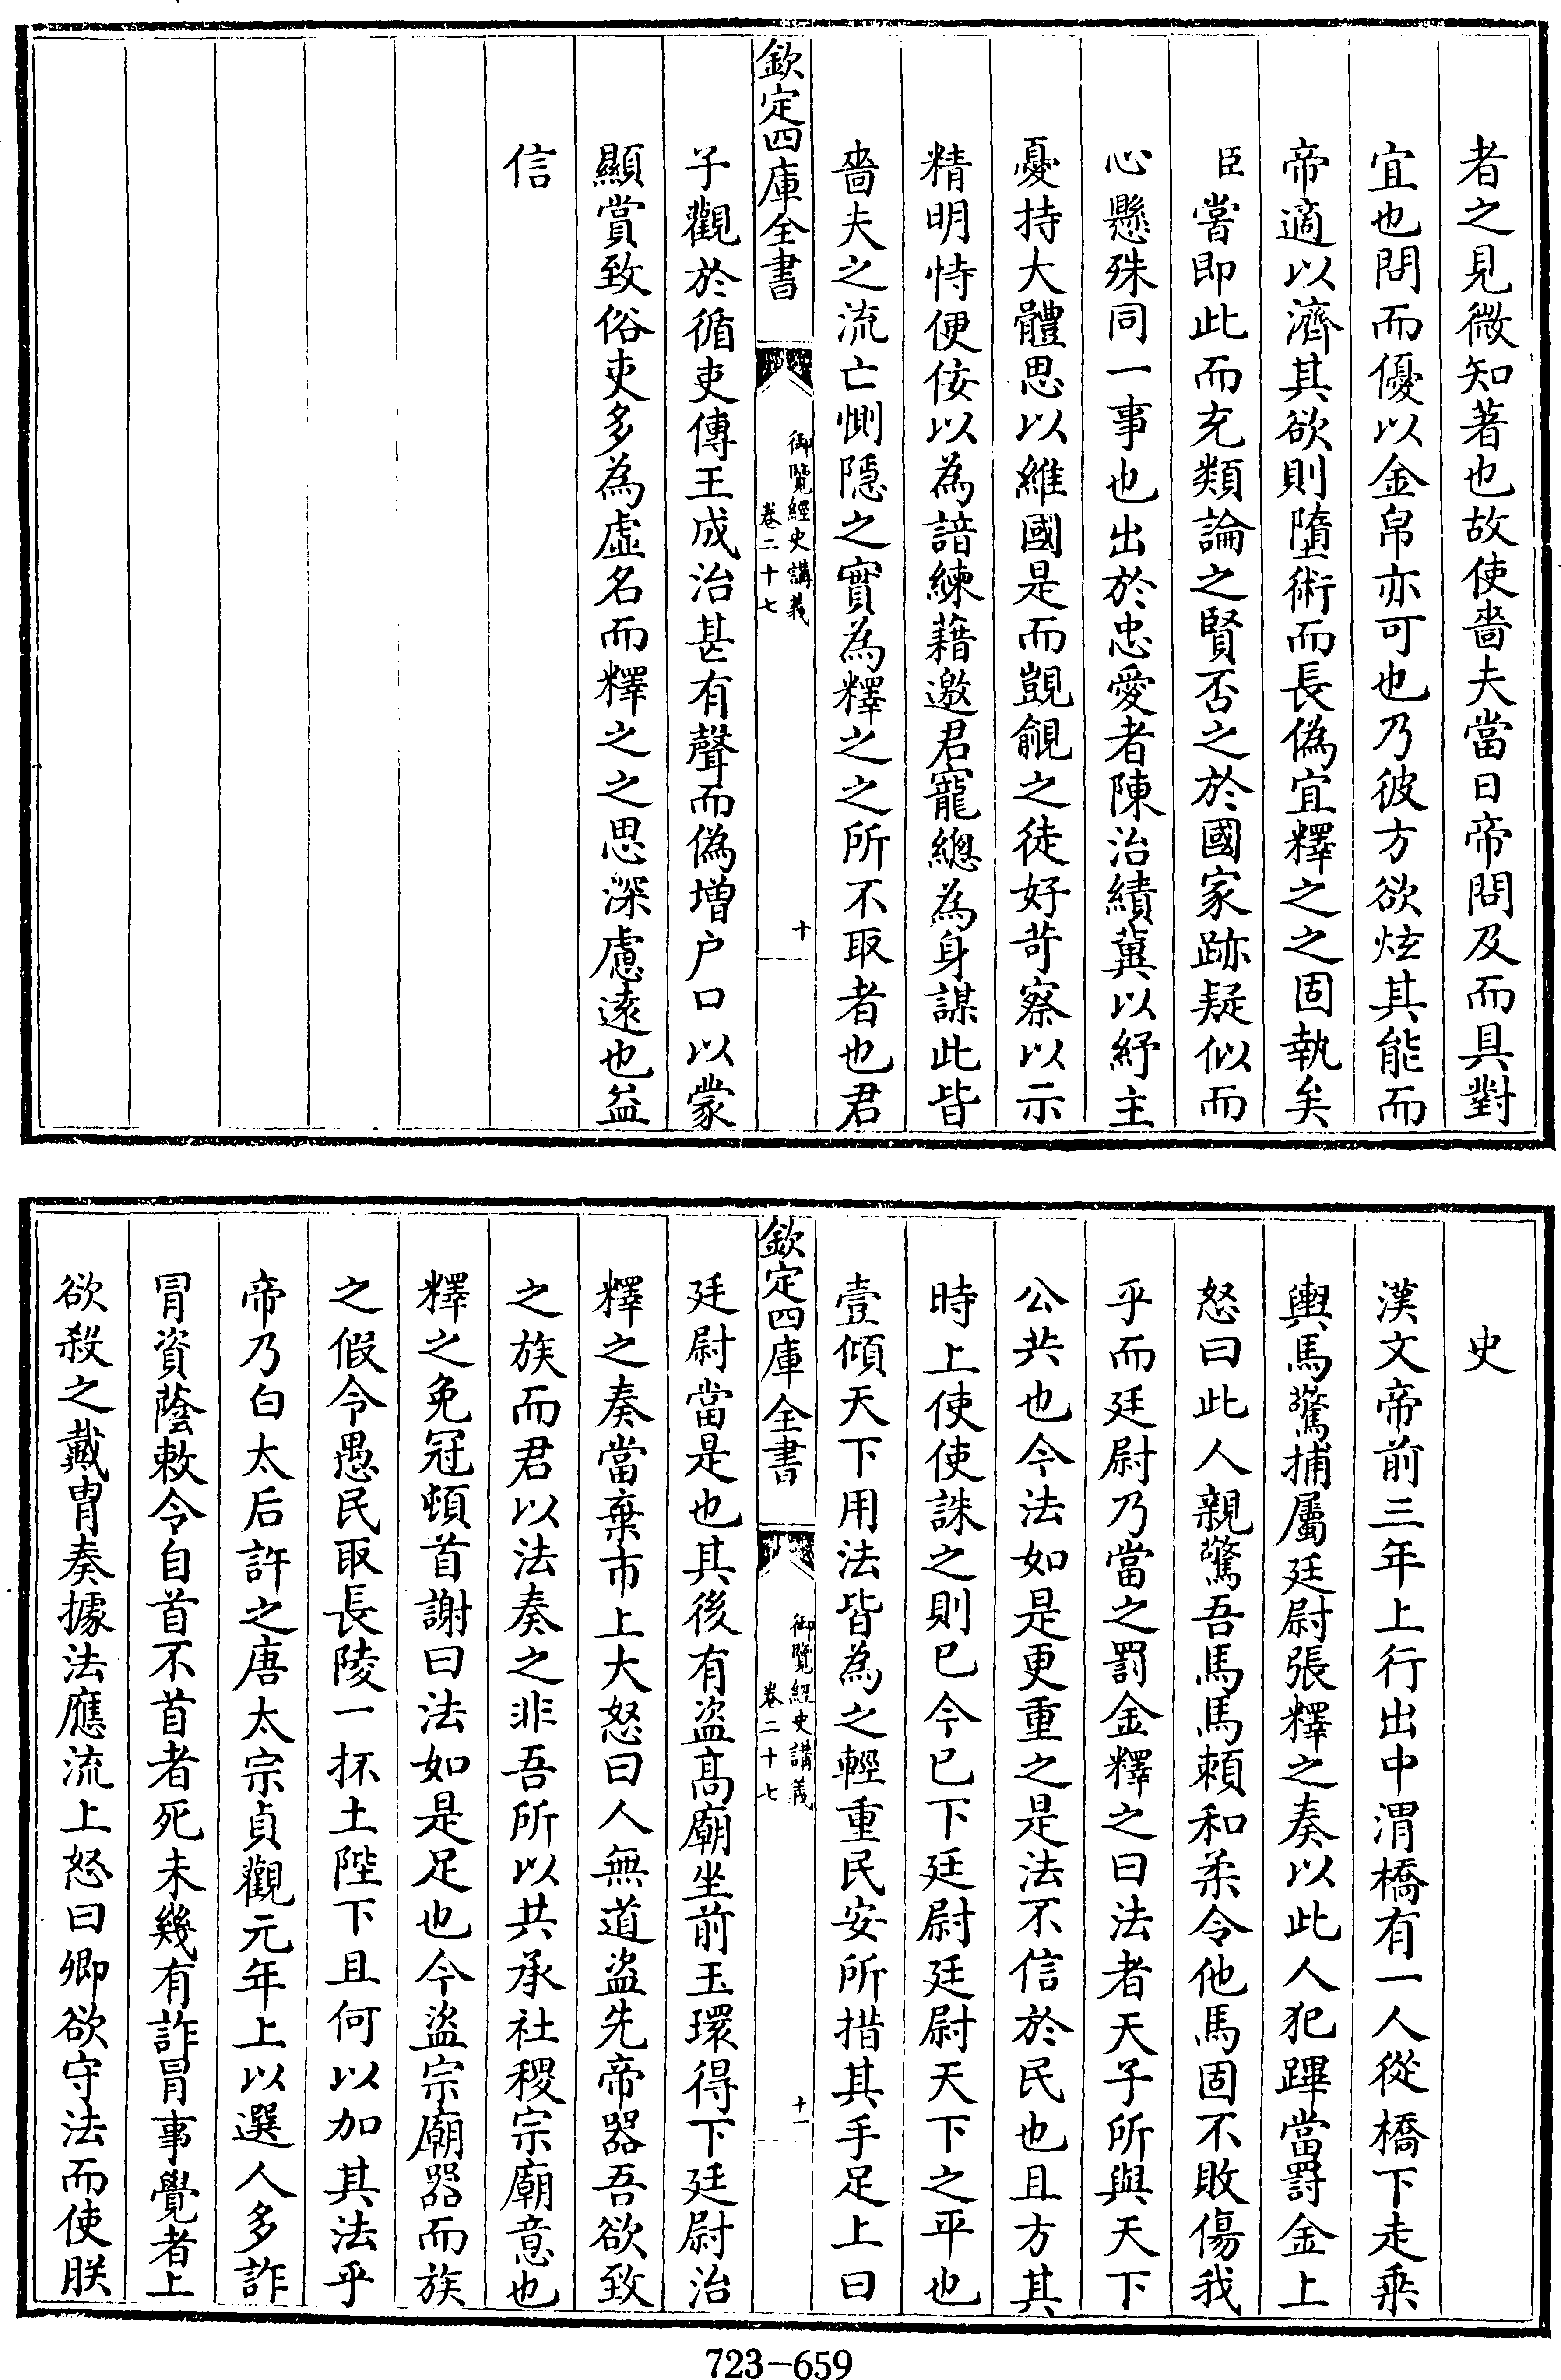 者之見微知著也故使嗇夫當日帝問及而具對
宜也問而優以金帛亦可也乃彼方欲炫其能而
帝適以濟其欲則墮術而長偽宜釋之之固執矣
臣嘗即此而充類論之賢否之於國家跡疑似而
心懸殊同一事也出於忠愛者陳治績冀以紓主
憂持大體思以維國是而覬覦之徒好苛察以示
精明恃便佞以為諳練藉邀君寵總為身謀此皆
嗇夫之流亡惻隱之實為釋之之所不取者也君
欽定四庫全書
御覽經史講義
卷二十七
十
子觀於循吏傳王成治甚有聲而偽增户口以蒙
顯賞致俗吏多為虛名而釋之之思深慮遠也益
信
史
漢文帝前三年上行出中渭橋有一人從橋下走乘
輿馬驚捕屬廷尉張釋之奏以此人犯蹕當罰金上
怒曰此人親驚吾馬馬賴和柔令他馬固不敗傷我
乎而廷尉乃當之罰金釋之曰法者天子所與天下
公共也今法如是更重之是法不信於民也且方其
時上使使誅之則已今已下廷尉廷尉天下之平也
壹傾天下用法皆為之輕重民安所措其手足上曰
欽定四庫全書
御覽經史講義
卷二十七
十一
廷尉當是也其後有盜高廟坐前玉環得下廷尉治
釋之奏當棄市上大怒曰人無道盜先帝器吾欲致
之族而君以法奏之非吾所以共承社稷宗廟意也
釋之免冠頓首謝曰法如是足也今盜宗廟器而族
之假令愚民取長陵一抔土陛下且何以加其法乎
帝乃白太后許之唐太宗貞觀元年上以選人多詐
冐資蔭敕令自首不首者死未幾有詐冐事覺者上
欲殺之戴胄奏據法應流上怒曰卿欲守法而使朕
723-659